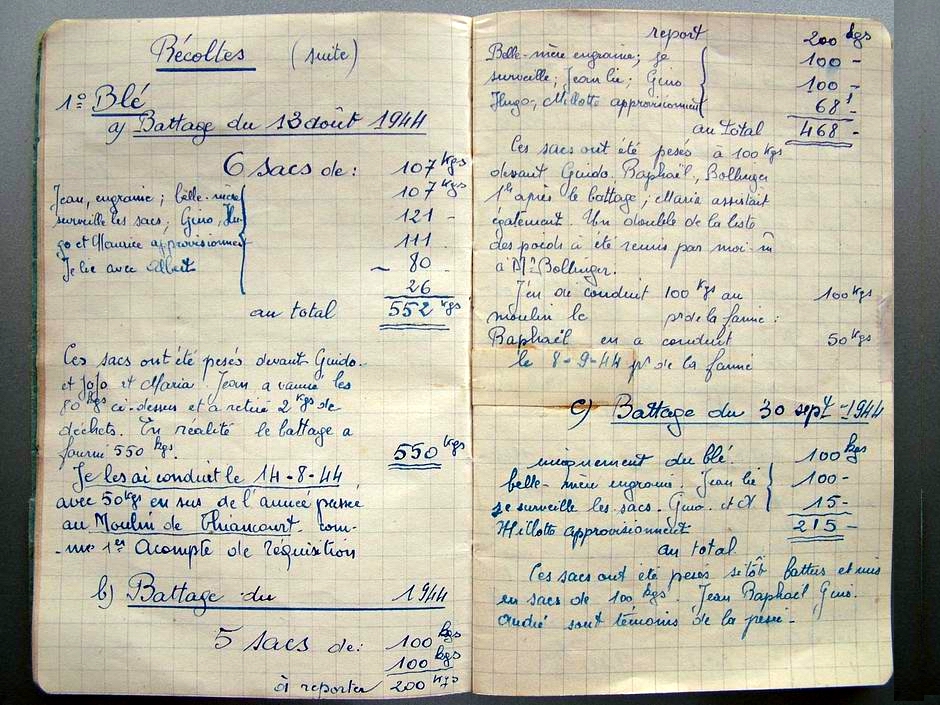 Récoltes (suite)
1º Blé
a) Battage du 13 août 1944
6 sacs de: 107 kgs
Jean, engraine; belle-mère 107 kgs
surveille les sacs, Gino, Hu- 121 -
go et Maurice approvisionnent 111
Je lie avec Albert 80
26
au total 552 kgs
Ces sacs ont été pesés devant Guido
et Jojo et Maria. Jean a vanné les
80 kgs ci-dessus et a retiré 2 kgs de
déchets. En réalité le battage a
fourni 550 kgs. 550 kgs
Je les ai conduit le 14-8-44
avec 50 kgs en sus de l'année passée
au Moulin de Thiaucourt com-
-me 1er Acompte de réquisition
b) Battage du 1944
5 sacs de: 100 kgs
100 kgs
à reporter 200 kgs
report 200 kgs
Belle-mère engraine; je 100 -
surveille; Jean lie; Gino 100 -
Hugo, Millotte approvisionnent 68
au total 468 -
Ces sacs ont été pesés à 100 kgs
devant Guido. Raphaël, Bollinger
1h après le battage; Maria assistait
également. Un double de la liste
des poids a été remis par moi-m
à Mr Bollinger.
J'en ai conduit 100 kgs au 100 kgs
moulin le pr de la farine:
Raphaël en a conduit 50 kgs
le 8-9-44 pr de la farine
c) Battage du 30 sept -1944
uniquement du blé. 100 kgs
belle-mère engraine. Jean lie 100 -
je surveille les sacs. Gino et
Millotte approvisionnent 15 -
215 -
au total
Ces sacs ont été pesés sitôt battus et mis
en sacs de 100 kgs. Jean Raphaël Gino.
André sont témoins de la pesée -